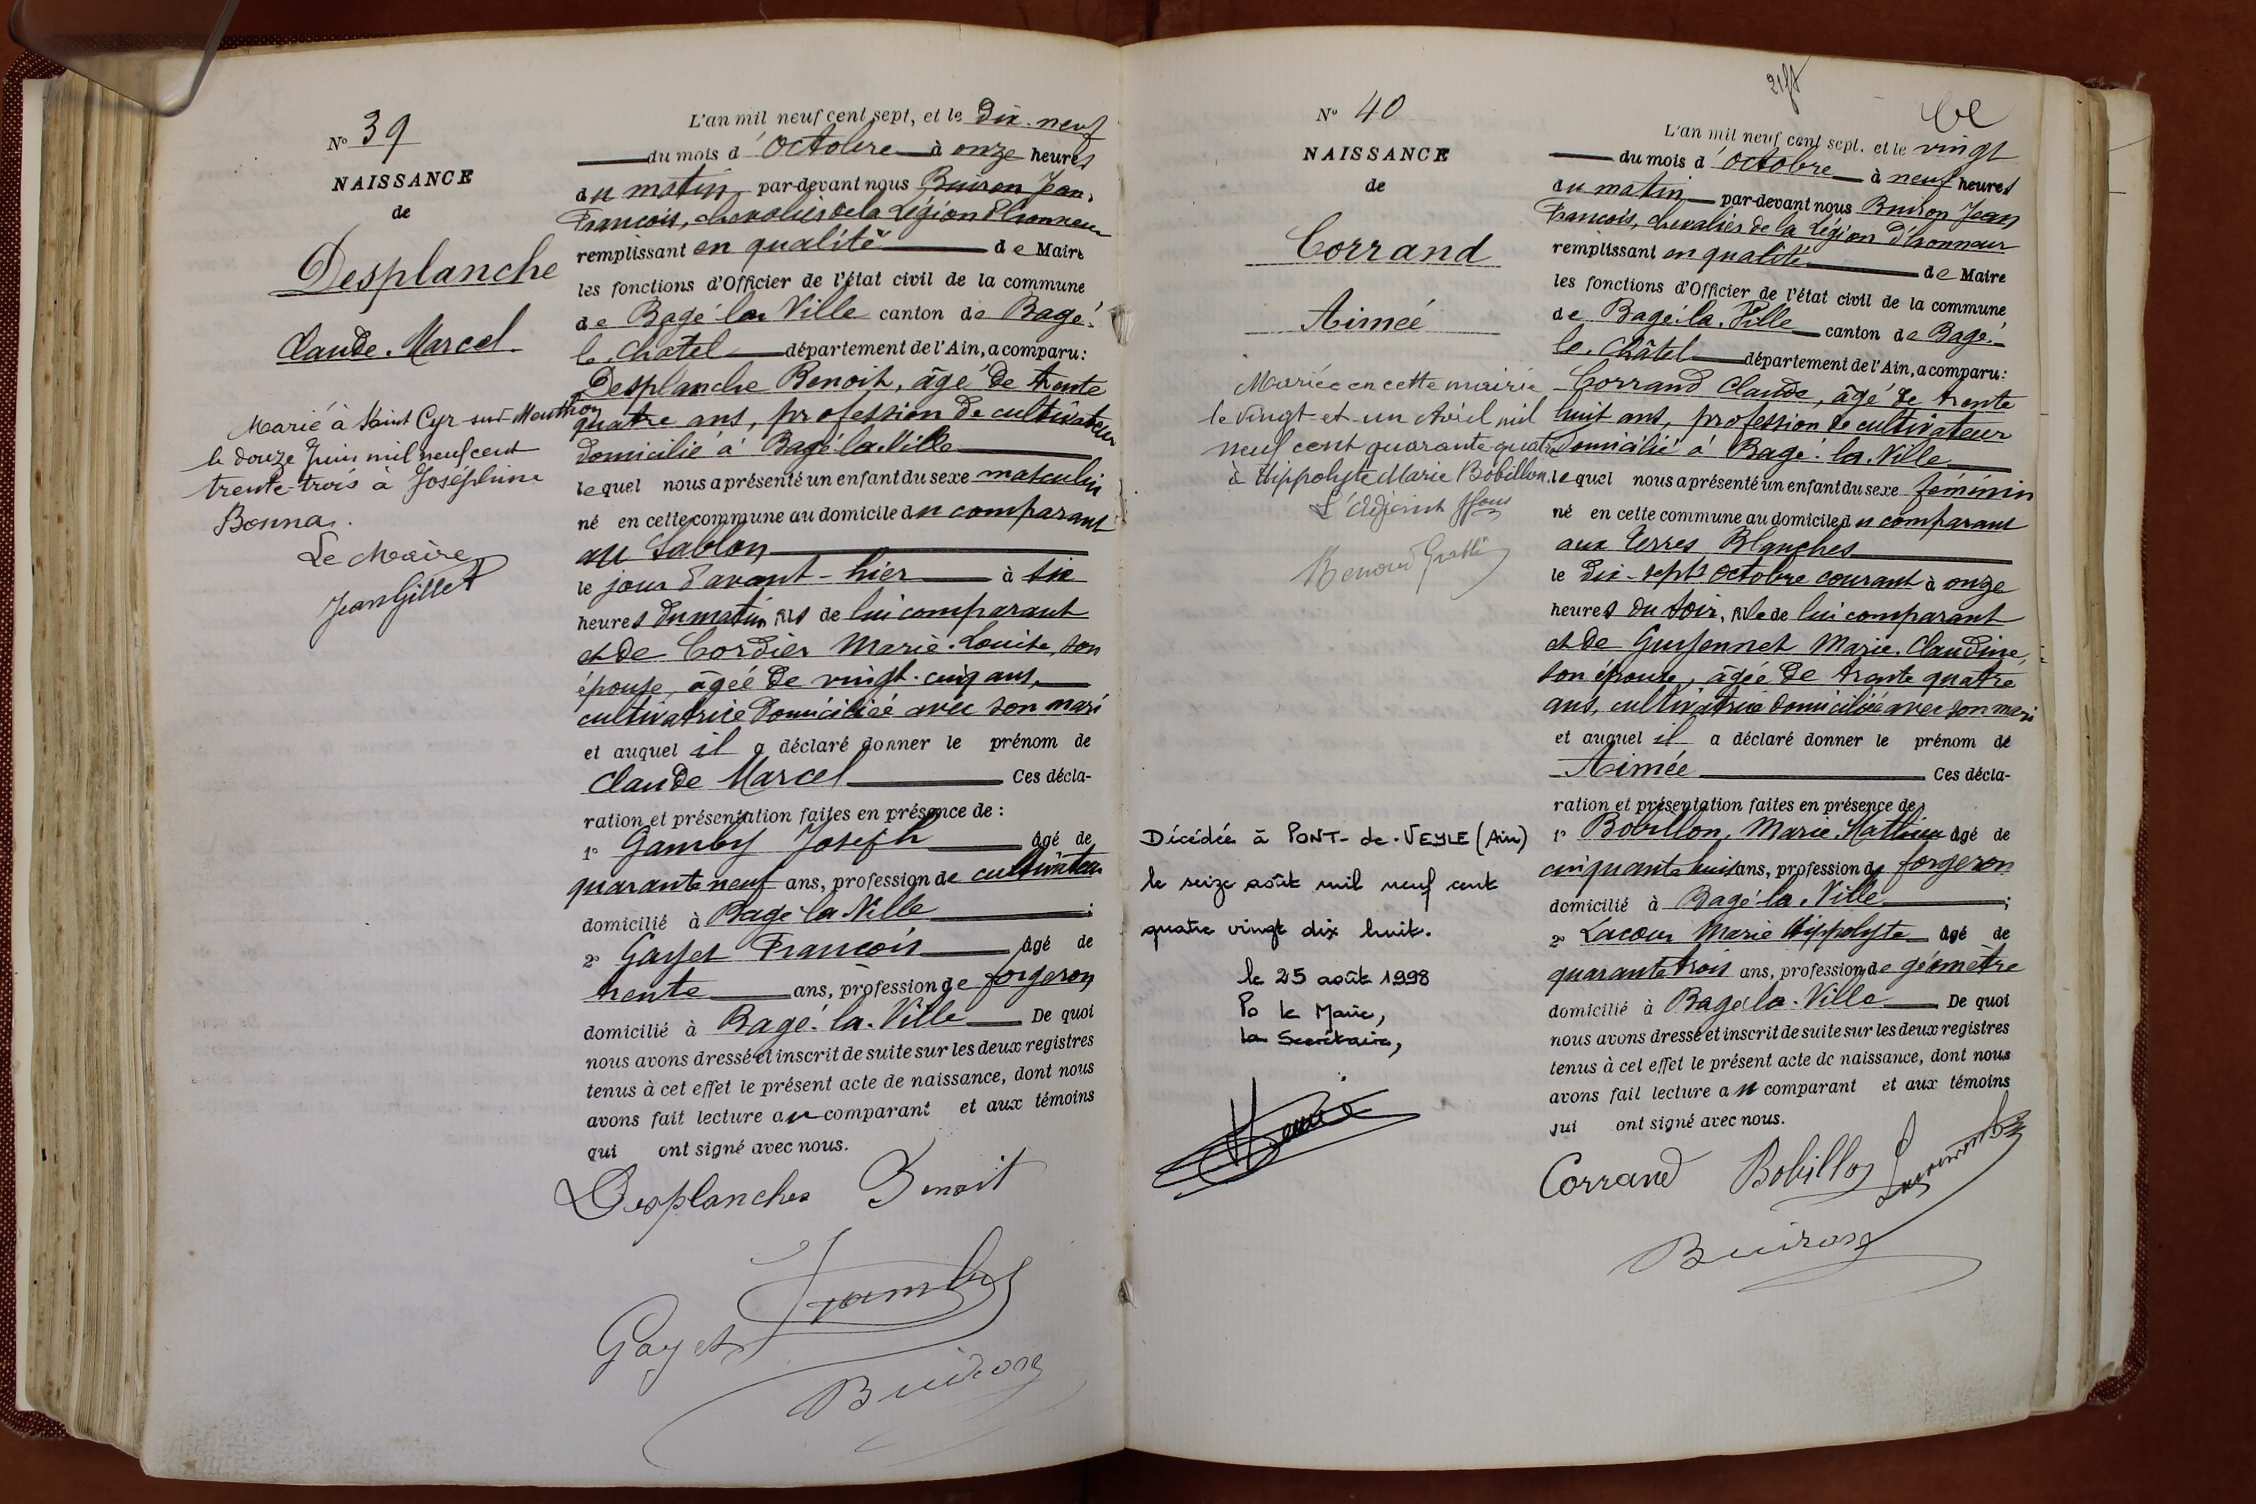 N° 39
NAISSANCE
de
Desplanche
Claude. Marcel
Marié à Saint Cyr-sur-Menthon
le douze Juin mil neuf cent
trente-trois à Joséphine
Bonnas.
Le Maire
Jean Gillet
L'an mil neuf cent sept, et le Dix-neuf
du mois d'Octobre à onze heures
du matin par-devant nous Buiron Jean,
François, chevalier de la Légion d'honneur
remplissant en qualité de Maire
les fonctions d'Officier de l'état civil de la commune
de Bagé la Ville canton de Bagé-
le-Chatel département de l'Ain, a comparu:
Desplanche Benoit, âgé de trente
quatre ans, profession de cultivateur
domicilié à Bagé la Ville
lequel nous a présenté un enfant du sexe masculin
né en cette commune au domicile du comparant
au Sablon
le jour d'avant-hier à six
heures du matin, fils de lui comparant
et de Cordier Marie-Louise, son
épouse, âgée de vingt-cinq ans,
cultivatrice domiciliée avec son mari
et auquel il a déclaré donner le prénom de
Claude Marcel Ces décla-
ration et présentation faites en présence de :
1° Gamby Joseph âgé de
quarante neuf ans, profession de cultivateur
domicilié à Bagé-la-Ville ;
2° Gayet François âgé de
trente ans, profession de forgeron
domicilié à Bagé-la-Ville De quoi
nous avons dressé et inscrit de suite sur les deux registres
tenus à cet effet le présent acte de naissance, dont nous
avons fait lecture au comparant et aux témoins
qui ont signé avec nous.
Desplanches Benoit
Gamby
Gayet
Buiron
N° 40
NAISSANCE
de
Corrand
Aimée
Mariée en cette mairie
le vingt-et-un Avril mil
neuf cent quarante-quatre
à Hippolyte Marie Bobillon.
L'adjoint
Décédée à PONT-de-VEYLE (Ain)
le seize août mil neuf cent
quatre vingt dix huit.
le 25 août 1998
Po le Maire,
la Secrétaire,
L'an mil neuf cent sept, et le vingt
du mois d'Octobre à neuf heures
du matin par-devant nous Buiron Jean
François, chevalier de la Légion d'honneur
remplissant en qualité de Maire
les fonctions d'Officier de l'état civil de la commune
de Bagé-la-Ville canton de Bagé-
le-Châtel département de l'Ain, a comparu:
Corrand Claude, âgé de trente
huit ans, profession de cultivateur
domicilié à Bagé-la-Ville
lequel nous a présenté un enfant du sexe féminin
né en cette commune au domicile du comparant
aux Terres Blanches
le dix-sept Octobre courant à onze
heures du soir, fille de lui comparant
et de Guyennet Marie-Claudine,
son épouse, âgée de trente quatre
ans, cultivatrice domiciliée avec son mari
et auquel il a déclaré donner le prénom de
Aimée Ces décla-
ration et présentation faites en présence de :
1° Bobillon, Marie, Mathieu âgé de
cinquante huit ans, profession de forgeron
domicilié à Bagé-la-Ville ;
2° Lacour Marie Hippolyte âgé de
quarante trois ans, profession de géomètre
domicilié à Bagé-la-Ville De quoi
nous avons dressé et inscrit de suite sur les deux registres
tenus à cet effet le présent acte de naissance, dont nous
avons fait lecture au comparant et aux témoins
qui ont signé avec nous.
Corrand Bobillon
Buiron